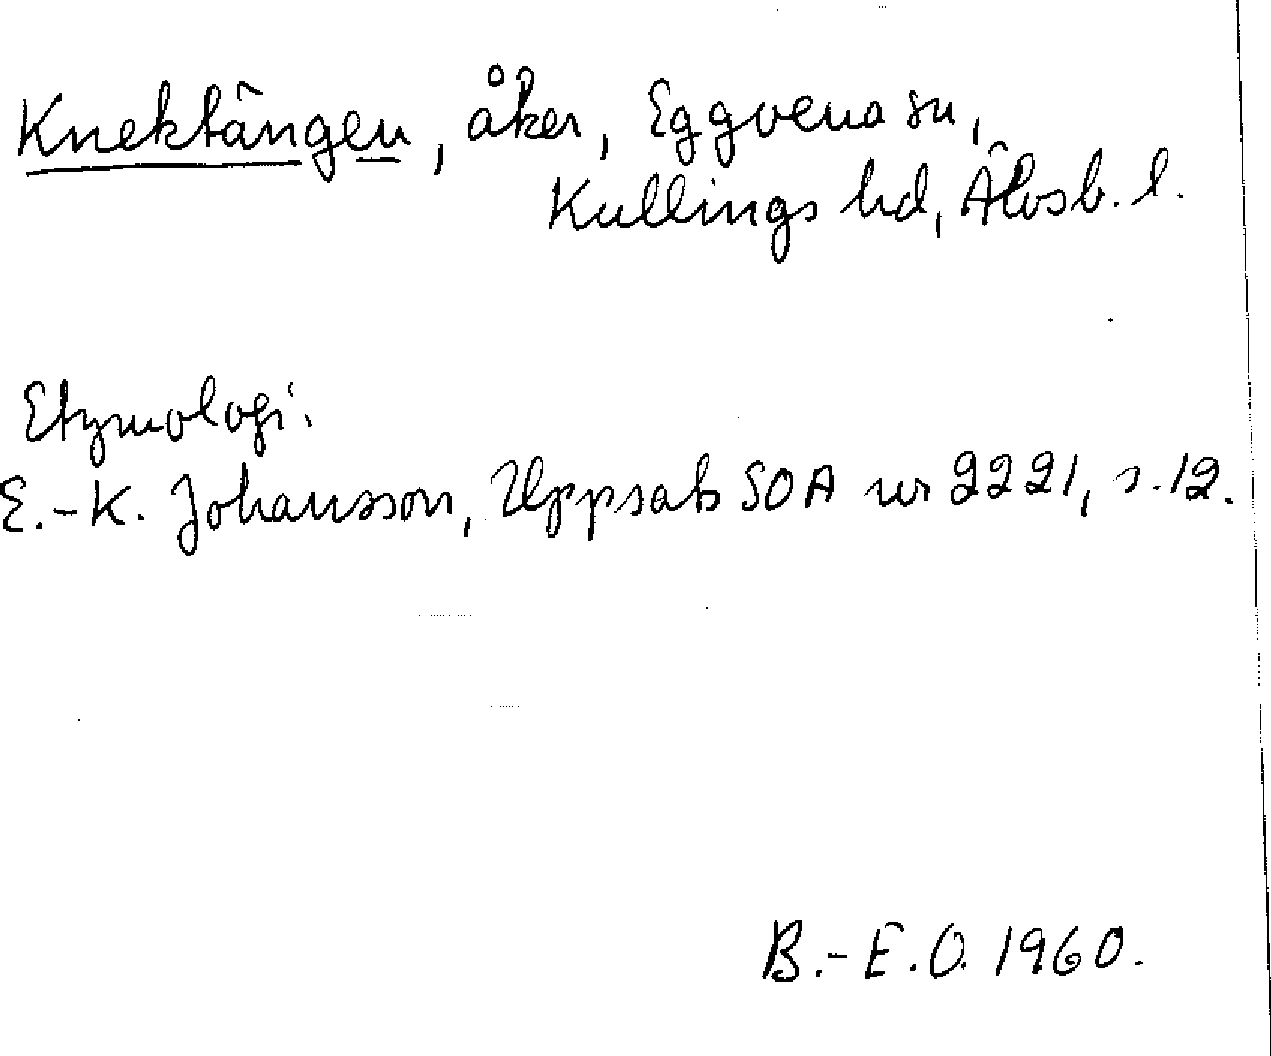 Knektängen, åker, Eggvena sn,
Kullings hd, Älvsb. l.
Etymologi.
E.-K. Johansson, Uppsats SOA nr 2221, s. 12.
B.-E.O. 1960.